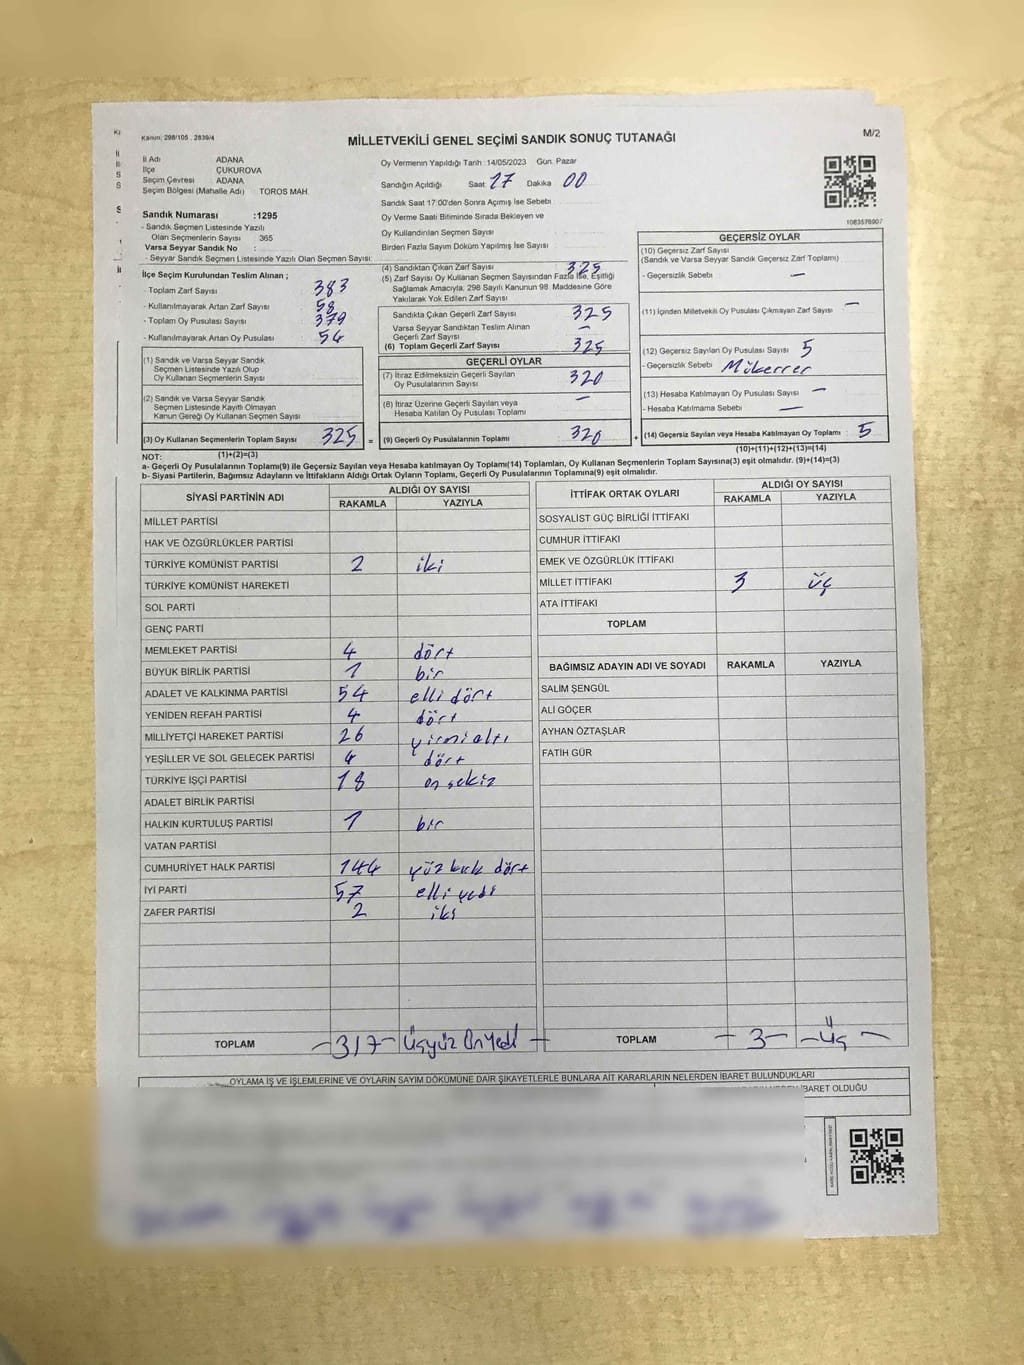 Kanun; 298/105 , 2839/4
MİLLETVEKİLİ GENEL SEÇİMİ SANDIK SONUÇ TUTANAĞI
M/2
İl Adı ADANA
İlçe ÇUKUROVA
Seçim Çevresi ADANA
Seçim Bölgesi (Mahalle Adı) TOROS MAH.
Sandık Numarası :1295
- Sandık Seçmen Listesinde Yazılı
Olan Seçmenlerin Sayısı 365
Varsa Seyyar Sandık No :
- Seyyar Sandık Seçmen Listesinde Yazılı Olan Seçmen Sayısı:
Oy Vermenin Yapıldığı Tarih :14/05/2023 Gün: Pazar
Sandığın Açıldığı Saat 17 Dakika 00
Sandık Saat 17:00'den Sonra Açımış İse Sebebi
Oy Verme Saati Bitiminde Sırada Bekleyen ve
Oy Kullandırılan Seçmen Sayısı
Birden Fazla Sayım Döküm Yapılmış İse Sayısı
1083576907
İlçe Seçim Kurulundan Teslim Alınan ;
- Toplam Zarf Sayısı 383
- Kullanılmayarak Artan Zarf Sayısı 58
- Toplam Oy Pusulası Sayısı 379
- Kullanılmayarak Artan Oy Pusulası 54
(1) Sandık ve Varsa Seyyar Sandık
Seçmen Listesinde Yazılı Olup
Oy Kullanan Seçmenlerin Sayısı
(2) Sandık ve Varsa Seyyar Sandık
Seçmen Listesinde Kayıtlı Olmayan
Kanun Gereği Oy Kullanan Seçmen Sayısı
(3) Oy Kullanan Seçmenlerin Toplam Sayısı 325 =
(1)+(2)=(3)
(4) Sandıktan Çıkan Zarf Sayısı 325
(5) Zarf Sayısı Oy Kullanan Seçmen Sayısından Fazla İse, Eşitliği
Sağlamak Amacıyla, 298 Sayılı Kanunun 98. Maddesine Göre
Yakılarak Yok Edilen Zarf Sayısı
Sandıkta Çıkan Geçerli Zarf Sayısı 325
Varsa Seyyar Sandıktan Teslim Alınan
Geçerli Zarf Sayısı —
(6) Toplam Geçerli Zarf Sayısı 325
GEÇERLİ OYLAR
(7) İtiraz Edilmeksizin Geçerli Sayılan
Oy Pusulalarının Sayısı 320
(8) İtiraz Üzerine Geçerli Sayılan veya
Hesaba Katılan Oy Pusulası Toplamı —
(9) Geçerli Oy Pusulalarının Toplamı 320 +
GEÇERSİZ OYLAR
(10) Geçersiz Zarf Sayısı
(Sandık ve Varsa Seyyar Sandık Geçersiz Zarf Toplamı)
- Geçersizlik Sebebi —
(11) İçinden Milletvekili Oy Pusulası Çıkmayan Zarf Sayısı —
(12) Geçersiz Sayılan Oy Pusulası Sayısı 5
- Geçersizlik Sebebi Mükerrer
(13) Hesaba Katılmayan Oy Pusulası Sayısı —
- Hesaba Katılmama Sebebi —
(14) Geçersiz Sayılan veya Hesaba Katılmayan Oy Toplamı : 5
(10)+(11)+(12)+(13)=(14)
NOT:
a- Geçerli Oy Pusulalarının Toplamı(9) ile Geçersiz Sayılan veya Hesaba katılmayan Oy Toplamı(14) Toplamları, Oy Kullanan Seçmenlerin Toplam Sayısına(3) eşit olmalıdır. (9)+(14)=(3)
b- Siyasi Partilerin, Bağımsız Adayların ve İttifakların Aldığı Ortak Oyların Toplamı, Geçerli Oy Pusulalarının Toplamına(9) eşit olmalıdır.
SİYASİ PARTİNİN ADI ALDIĞI OY SAYISI
RAKAMLA YAZIYLA
MİLLET PARTİSİ
HAK VE ÖZGÜRLÜKLER PARTİSİ
TÜRKİYE KOMÜNİST PARTİSİ 2 iki
TÜRKİYE KOMÜNİST HAREKETİ
SOL PARTİ
GENÇ PARTİ
MEMLEKET PARTİSİ 4 dört
BÜYÜK BİRLİK PARTİSİ 1 bir
ADALET VE KALKINMA PARTİSİ 54 elli dört
YENİDEN REFAH PARTİSİ 4 dört
MİLLİYETÇİ HAREKET PARTİSİ 26 yirmi altı
YEŞİLLER VE SOL GELECEK PARTİSİ 4 dört
TÜRKİYE İŞÇİ PARTİSİ 18 on sekiz
ADALET BİRLİK PARTİSİ
HALKIN KURTULUŞ PARTİSİ 1 bir
VATAN PARTİSİ
CUMHURİYET HALK PARTİSİ 144 yüz kırk dört
İYİ PARTİ 57 elli yedi
ZAFER PARTİSİ 2 iki
TOPLAM —317— Üçyüz Onyedi —
İTTİFAK ORTAK OYLARI ALDIĞI OY SAYISI
RAKAMLA YAZIYLA
SOSYALİST GÜÇ BİRLİĞİ İTTİFAKI
CUMHUR İTTİFAKI
EMEK VE ÖZGÜRLÜK İTTİFAKI
MİLLET İTTİFAKI 3 üç
ATA İTTİFAKI
TOPLAM
BAĞIMSIZ ADAYIN ADI VE SOYADI RAKAMLA YAZIYLA
SALİM ŞENGÜL
ALİ GÖÇER
AYHAN ÖZTAŞLAR
FATİH GÜR
TOPLAM — 3 — — Üç —
OYLAMA İŞ VE İŞLEMLERİNE VE OYLARIN SAYIM DÖKÜMÜNE DAİR ŞİKAYETLERLE BUNLARA AİT KARARLARIN NELERDEN İBARET BULUNDUKLARI
İBARET OLDUĞU